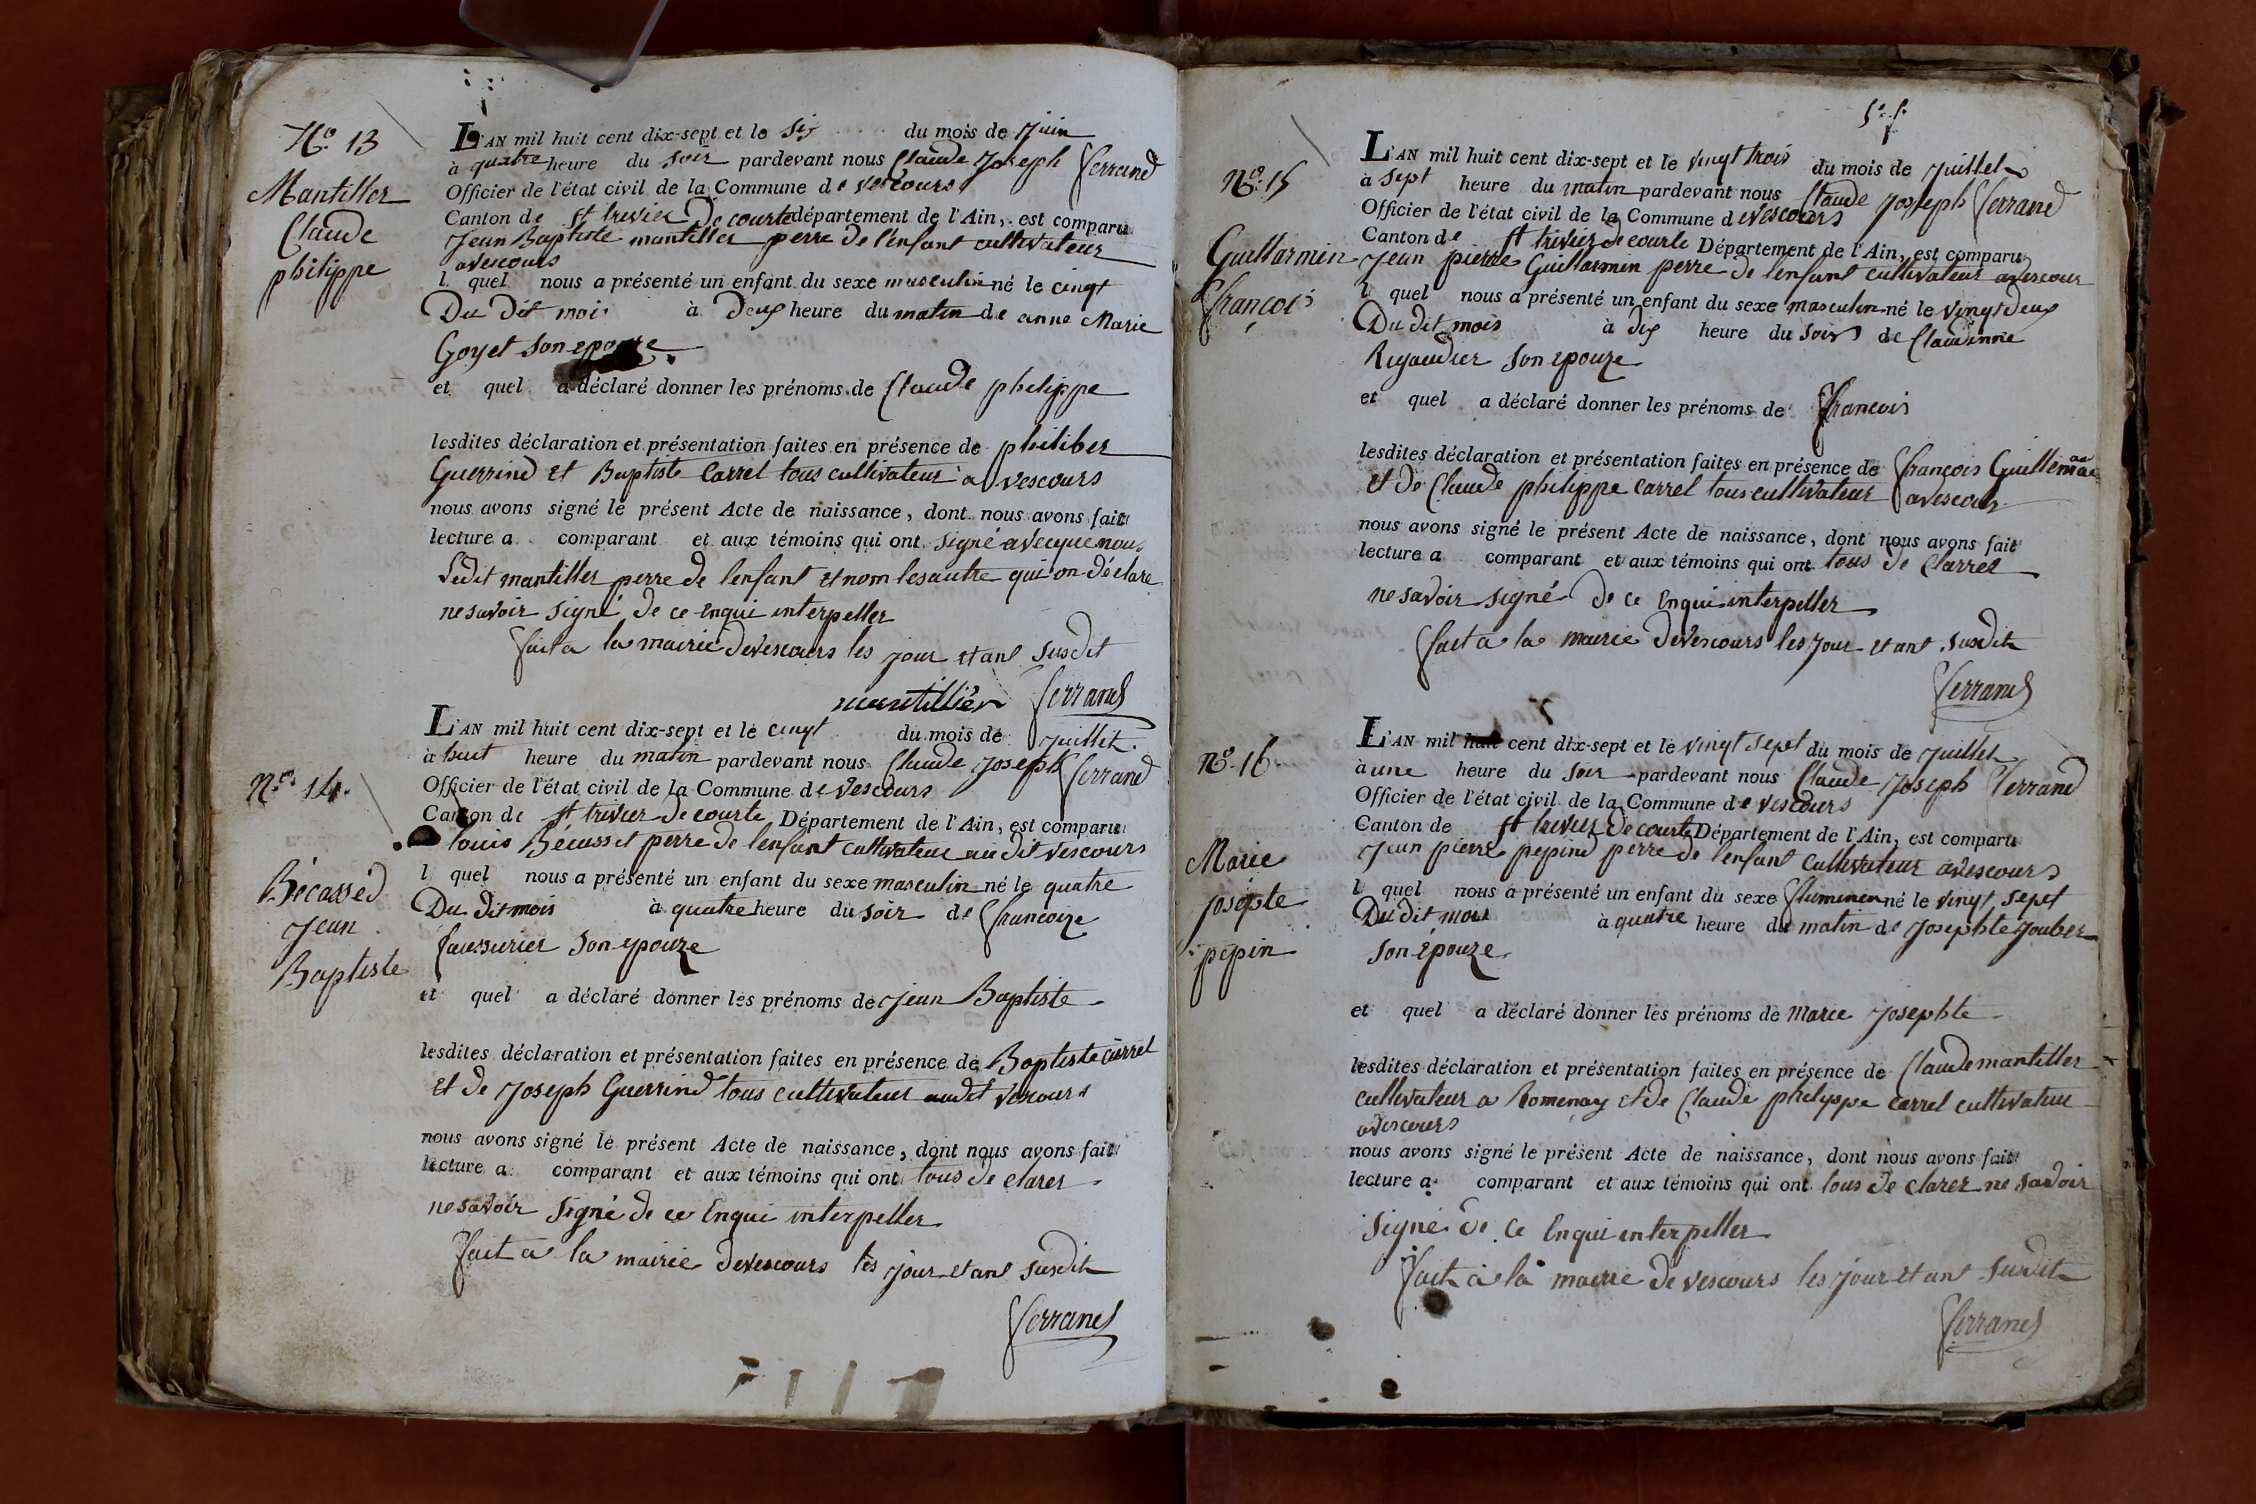 N.º 13
Mantiller
Claude
philippe
L'AN mil huit cent dix-sept et le six du mois de Juin
à quatre heure du soir pardevant nous Claude Joseph ferrand
Officier de l'état civil de la Commune de vescours
Canton de st trivier De courte département de l'Ain, est comparu
Jean Baptiste mantiller perre de l'enfant cultivateur
avescours
l quel nous a présenté un enfant du sexe masculin né le cinqt
Du Dit mois à Deux heure du matin de anne Marie
Goyet son epouze
et quel a déclaré donner les prénoms de Claude philippe
lesdites déclaration et présentation faites en présence de philiber
Guerrind et Baptiste Carrel tous cultivateur a vescours
nous avons signé le présent Acte de naissance, dont nous avons fait
lecture a comparant et aux témoins qui ont signé avecque nous
Ledit mantiller perre de lenfant et nom lesautre qui on déclare
ne savoir signé de ce enqui interpeller
fait a la mairie devescours les jour et ant susdit
mantillier ferrand
N.º 14.
Bécassed
Jean
Baptiste
L'AN mil huit cent dix-sept et le cinqt du mois de Juillet
à huit heure du matin pardevant nous Claude Joseph ferrand
Officier de l'état civil de la Commune de vescours
Canton de st trivier de courte Département de l'Ain, est comparu
louis Bécasset perre de lenfant cultivateur au dit vescours
l quel nous a présenté un enfant du sexe masculin né le quatre
Du dit mois à quatre heure du soir de francoize
faussurier son epouze
et quel a déclaré donner les prénoms de Jean Baptiste
lesdites déclaration et présentation faites en présence de Baptiste carrel
et de Joseph Guerrind tous cultivateur audit vescours
nous avons signé le présent Acte de naissance, dont nous avons fait
lecture a comparant et aux témoins qui ont tous de clarer
ne savoir signé de ce enqui interpeller
fait a la mairie devescours les jour et ant susdit
ferrand
N.º 15
Guillarmin
françois
L'AN mil huit cent dix-sept et le vingt trois du mois de Juillet
à sept heure du matin pardevant nous Claude Joseph ferrand
Officier de l'état civil de la Commune de vescours
Canton de st trivier de courte Département de l'Ain, est comparu
Jean pierre Guillarmin perre de lenfant cultivateur avescour
l quel nous a présenté un enfant du sexe masculin né le vingt deux
Du dit mois à dix heure du soir de Claudinne
Rigaudier son epouze
et quel a déclaré donner les prénoms de francois
lesdites déclaration et présentation faites en présence de françois
et de Claude philippe carrel tous cultivateur avescour
nous avons signé le présent Acte de naissance, dont nous avons fait
lecture a comparant et aux témoins qui ont tous de Clarrer
ne savoir signé de ce enqui interpeller
fait a la mairie devescours les jour et ant susdit
ferrand
N.º 16
Marie
josepte
pepin
L'AN mil huit cent dix-sept et le vingt sept du mois de Juillet
à une heure du soir pardevant nous Claude Joseph ferrand
Officier de l'état civil de la Commune de vescours
Canton de st trivier de courte Département de l'Ain, est comparu
Jean pierre pepind perre de lenfant cultivateur avescours
l quel nous a présenté un enfant du sexe né le vingt sept
Du dit mois à quatre heure du matin de Josephte Jouber
son épouze
et quel a déclaré donner les prénoms de marie Josephte
lesdites déclaration et présentation faites en présence de Claude mantiller
cultivateur a Romenay et de Claude philyppe carrel cultivateur
avescours
nous avons signé le présent Acte de naissance, dont nous avons fait
lecture a comparant et aux témoins qui ont tous de clarer ne savoir
signé de ce enqui interpeller
fait a la mairie de vescours les jour et ant susdit
ferrand